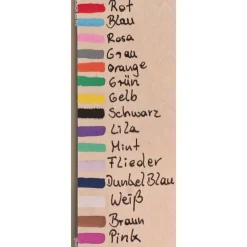 Rot
Blau
Rosa
Grau
Orange
Grün
Gelb
Schwarz
Lila
Mint
Flieder
Dunkel Blau
Weiß
Braun
Pink